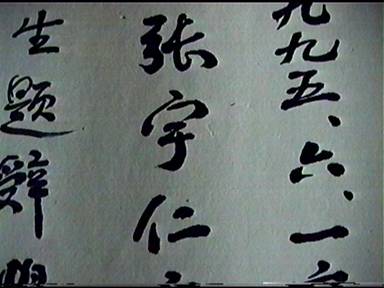 九九五、六、一
张宇仁
生题辞